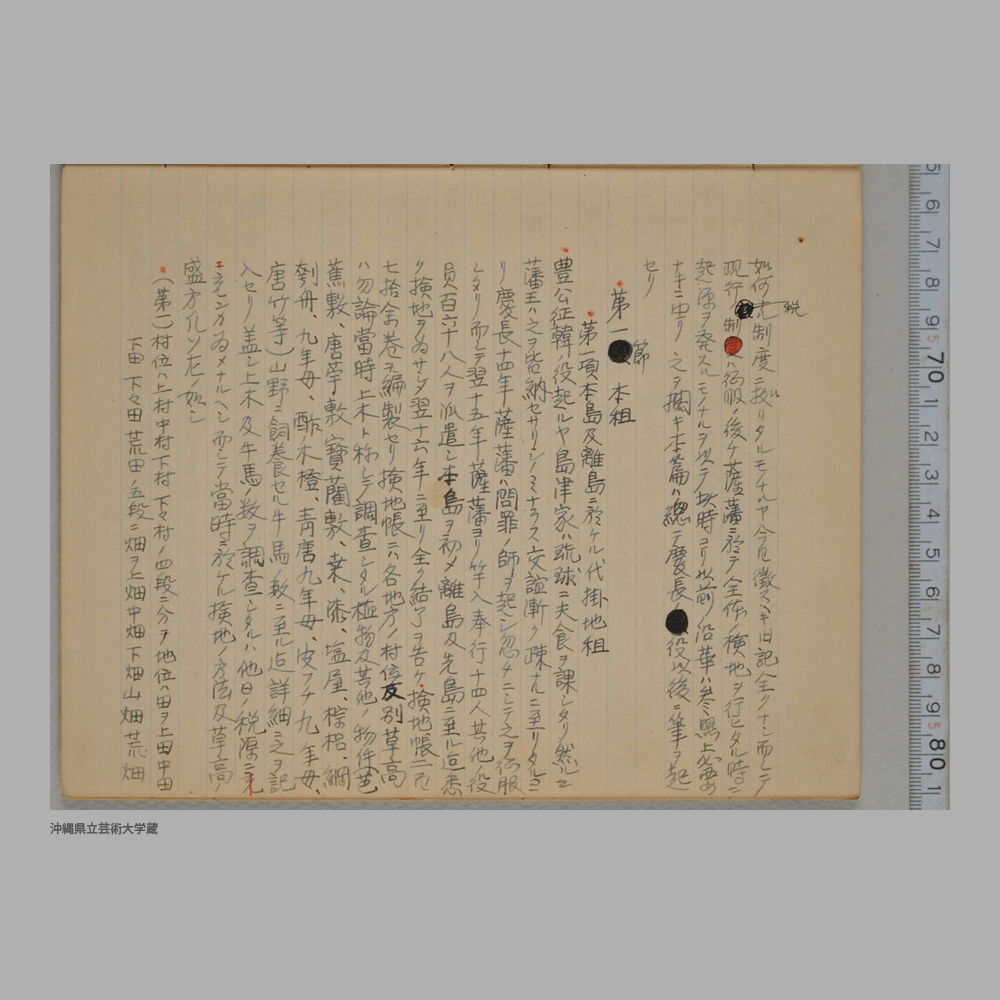 如何ナル税制度ニ拠リタルモノナルヤ今日徴スヘキ旧記全クナシ而シテ
現行制ハ征服ノ後チ薩藩ニ於テ全体ノ検地ヲ行ヒタル時ニ
起源ヲ発スルモノナルヲ以テ此時ヨリ以前ノ沿革ハ参照上必要
ナキニ由リ之ヲ掲キ本篇ハ總テ慶長役以後ニ筆ヲ起
セリ
第一節 本租
第一項本島及離島ニ於ケル代掛地租
豊公征韓ノ役起ルヤ島津家ハ琉球ニ夫食ヲ課シタリ然ルニ
藩王ハ之ヲ皆納セサリシノミナラス交誼漸ク疎ナルニ至リタルヨ
リ慶長十四年薩藩ハ問罪ノ師ヲ起シ忽チニシテ之ヲ征服
シタリ而シテ翌十五年薩藩ヨリ竿入奉行十四人其他役
員百六十八人ヲ派遣シ本島ヲ初メ離島及先島ニ至ル迄悉
ク検地ヲ為サシメ翌十六年ニ至リ全ク結了ヲ告ケ検地帳二百
七拾余巻ヲ編製セリ検地帳ニハ各地方ノ村位反別草高
ハ勿論當時上木ト称シテ調査シタル植物及其他ノ物件(芭
蕉敷、唐苧敷、寶藺敷、桒、漆、塩屋、棕梠、綱
剝舟、九年母、酢木橙、青唐九年母、安ヲチ九年母、
唐竹等)山野ニ飼養セル牛馬ノ数ニ至ル迄詳細ニ之ヲ記
入セリ蓋シ上木及牛馬ノ数ヲ調査シタルハ他日ノ税源ニ充
ヱンカ為メナルヘシ而シテ當時ニ於ケル検地ノ方法及草高ノ
盛方凡ソ左ノ如シ
(第一)村位ハ上村中村下村下々村ノ四段ニ分ヲ地位ハ田ヲ上田中田
下田下々田荒田ノ五段ニ畑ヲ上畑中畑下畑山畑荒畑
5 6 7 8 9 70 1 2 3 4 5 6 7 8 9 80 1
沖縄県立芸術大学蔵